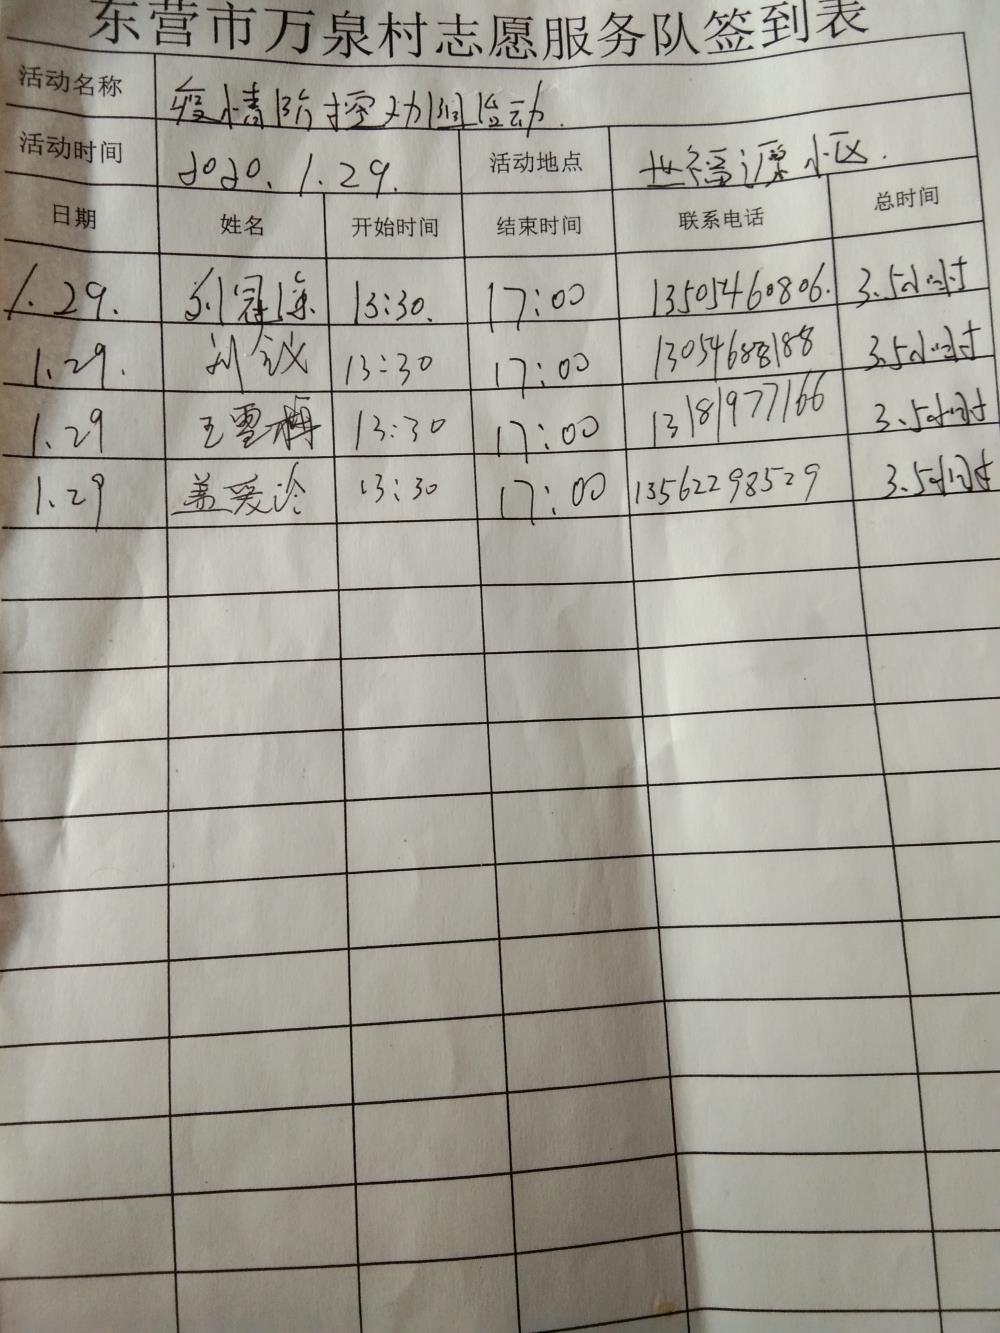 东营市万泉村志愿服务队签到表
活动名称 疫情防控劝阻活动.
活动时间 2020.1.29. 活动地点 小区.
日期 姓名 开始时间 结束时间 联系电话 总时间
1.29. 13:30. 17:00 13505460806. 3.5小时
1.29. 13:30 17:00 13054688188 3.5小时
1.29 王雪梅 13:30 17:00 13181977166 3.5小时
1.29 盖爱玲 13:30 17:00 13562298529 3.5小时